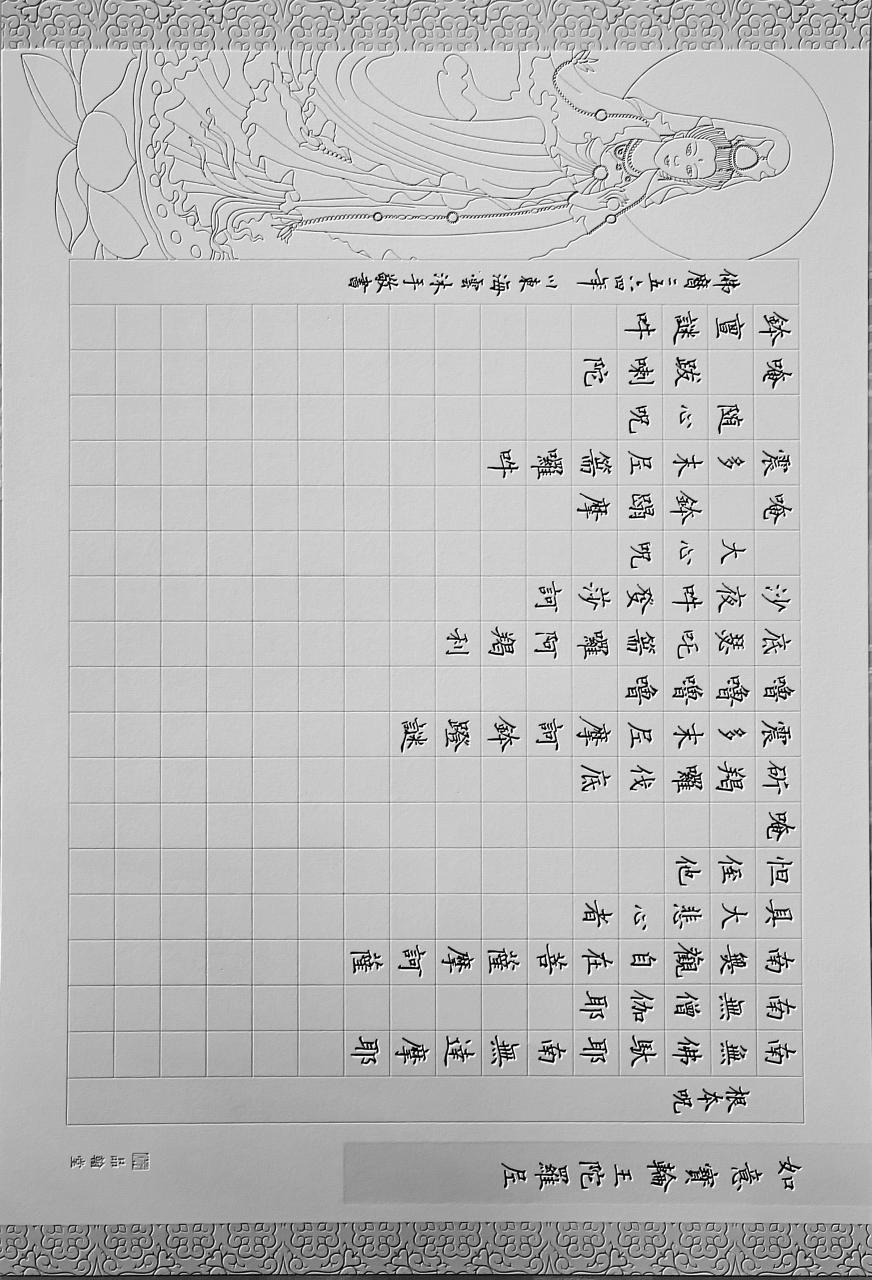 如意寶輪王陀羅尼
根本呪
南無佛馱耶南無達摩耶
南無僧伽耶
南無觀自在菩薩摩訶薩
具大悲心者
怛侄他
唵
斫羯囉伐底
震多末尼摩訶鉢蹬謎
嚕嚕嚕嚕
底瑟吒篅囉阿羯利
沙夜吽發莎訶
大心呪
唵 鉢蹋摩
震多末尼篅囉吽
隨心呪
唵 跋喇陀
鉢亶謎吽
佛曆二五六四年 川東海雲沐手敬書
品翰堂